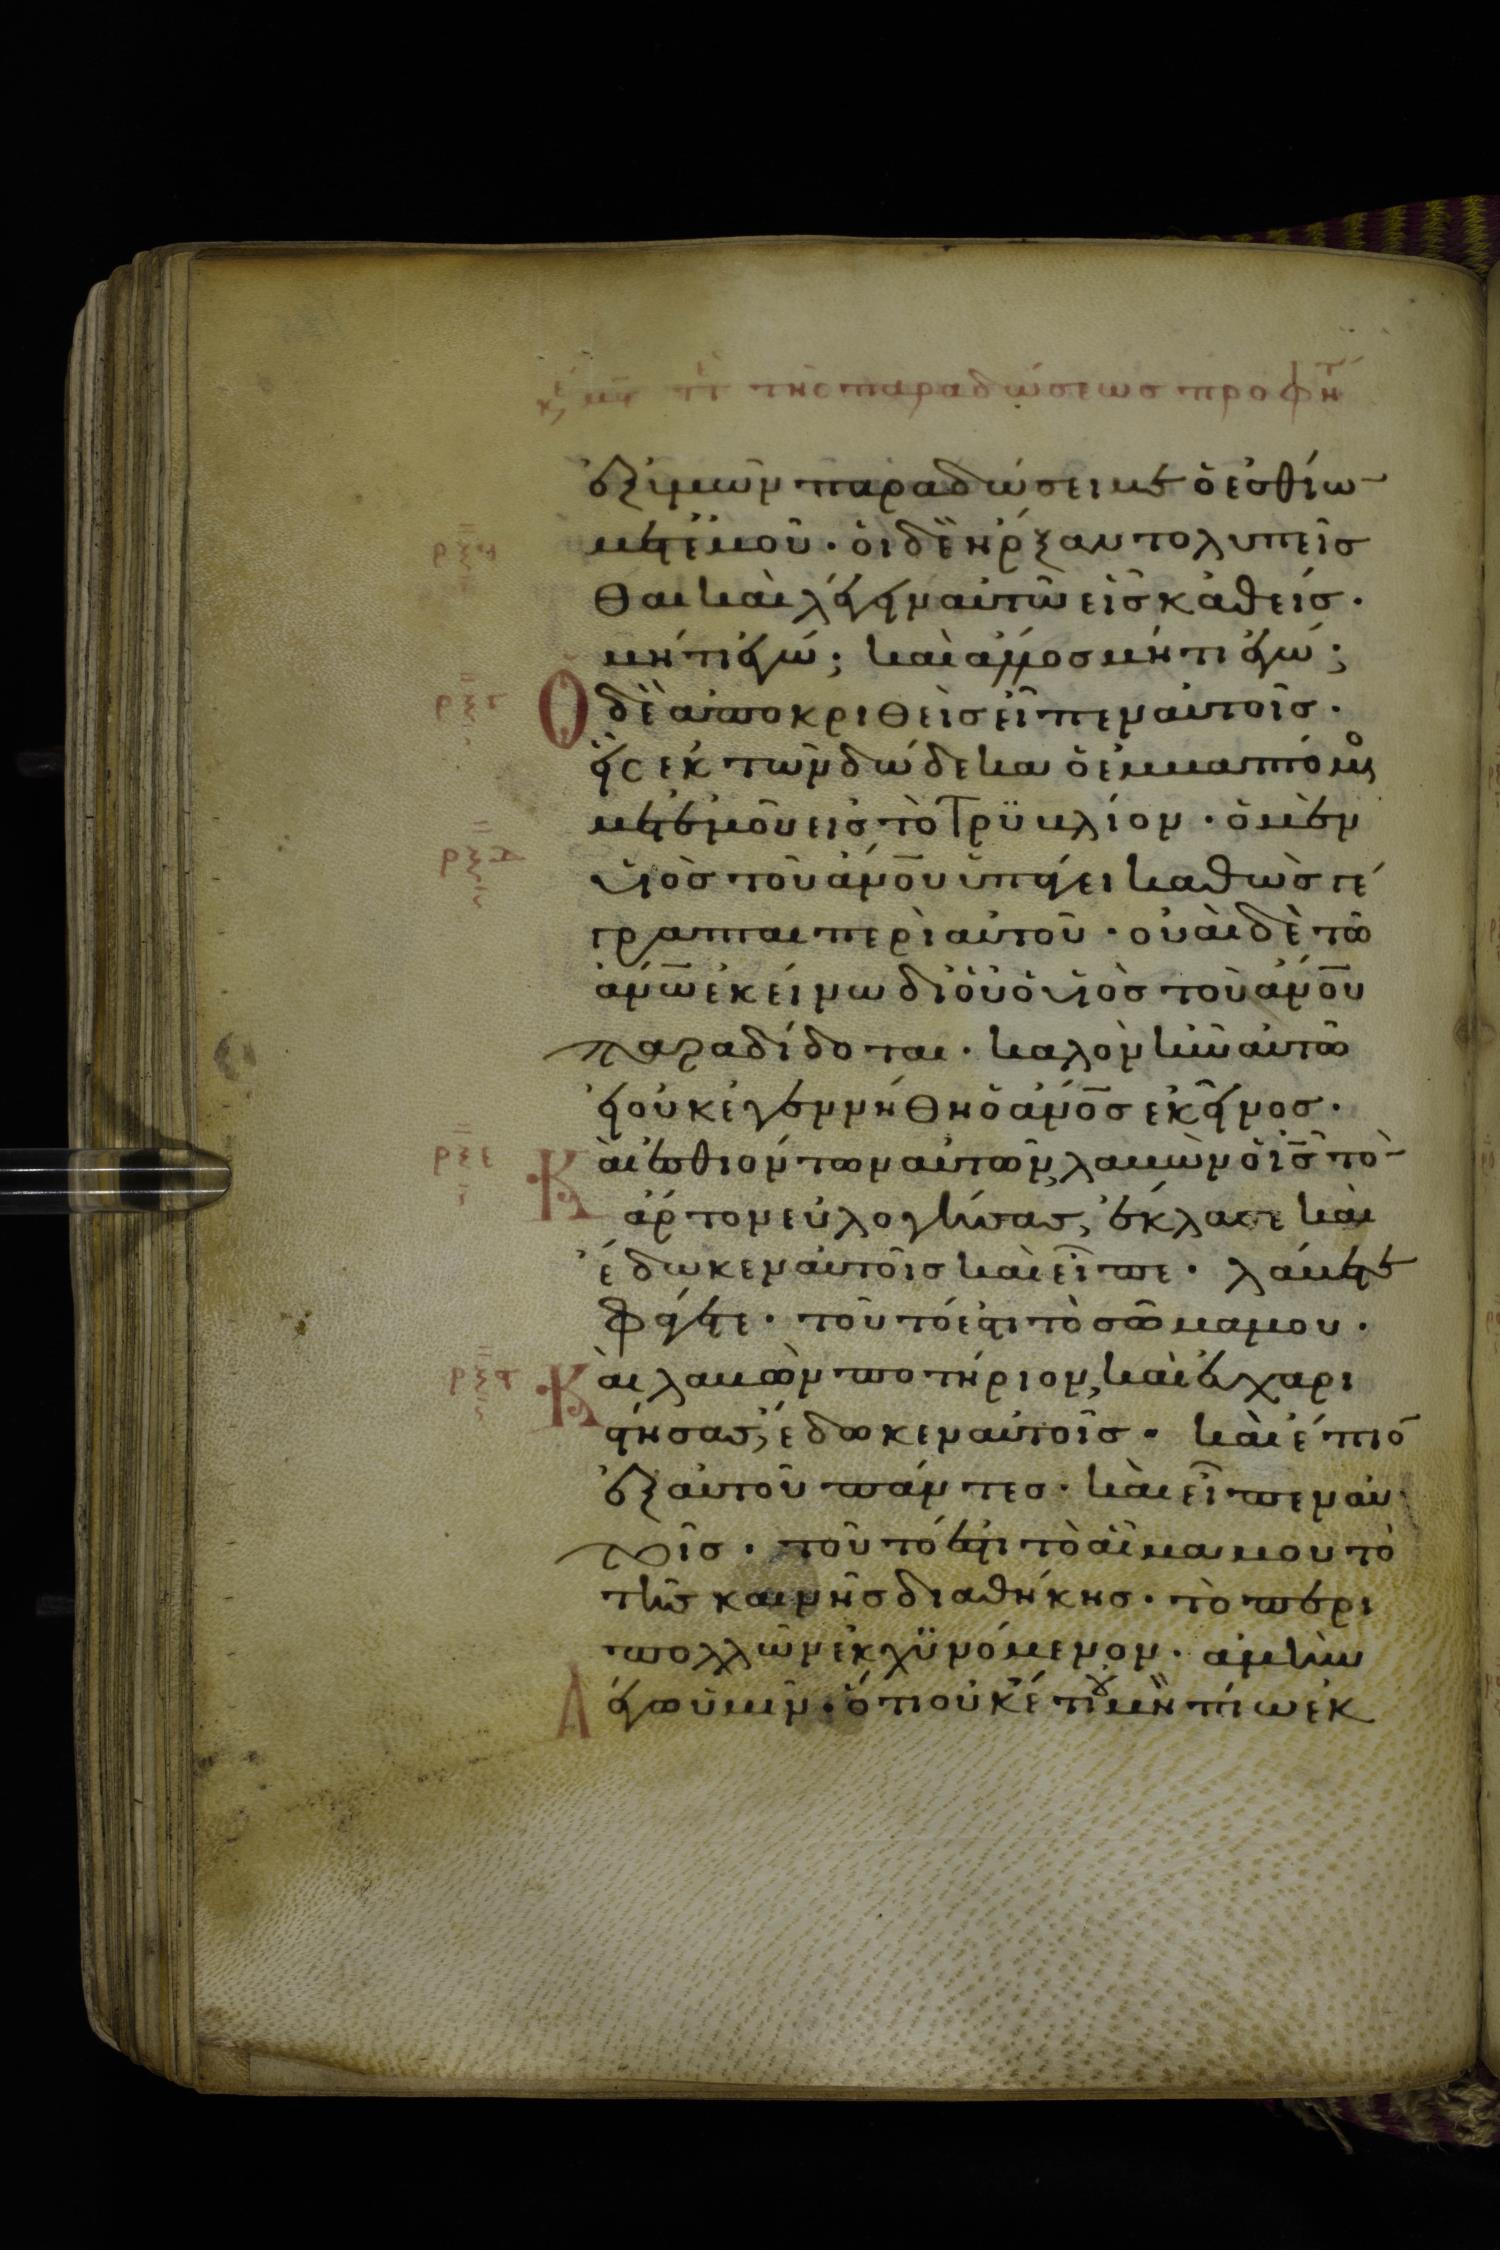 τῆς παραδώσεως προφη
ἐξ ὑμῶν παραδώσει με ὁ ἐσθίω¯
μετ' ἐμοῦ· οἱ δὲ ἤρξαντο λυπεῖσ
θαι καὶ λέγειν αὐτῶ εἷς καθεῖς·
μήτι ἐγώ; καὶ ἄλλος μήτι ἐγώ;
ρξγ
Ὁ δὲ ἀποκριθεὶς εἶπεν αὐτοῖς·
εἷς ἐκ τῶν δώδεκα ὁ ἐμβαπτόμενος
μετ' ἐμοῦ εἰς τὸ τρϋβλίον· ὁ μὲν
ρξδ
υἱὸς τοῦ ἀν̅ου ὑπάγει καθὼς γέ
γραπται περὶ αὐτοῦ· οὐαὶ δὲ τῶ
ἀν̅ω ἐκείνω δι' οὗ ὁ υἱὸς τοῦ ἀν̅ου
παραδίδοται· καλὸν ἦν αὐτῶ
εἰ οὐκ ἐγεννήθη ὁ ἄν̅ος ἐκεῖνος·
ρξε
Καὶ ἐσθιόντων αὐτῶν, λαβὼν ὁ ι̅ς τὸ¯
ἄρτον εὐλογήσας, ἔκλασε καὶ
ἔδωκεν αὐτοῖς καὶ εἶπε· λάβετε
φάγετε· τοῦτό ἐστι τὸ σῶμα μου·
ρξϛ
Καὶ λαβὼν ποτήριον, καὶ εὐχαρι
στήσας, ἔδωκεν αὐτοῖς· καὶ ἔπιο¯
ἐξ αὐτοῦ πάντες· καὶ εἶπεν αὐ
τοῖς· τοῦτό ἐστι τὸ αἷμα μου τὸ
τῆς καινῆς διαθήκης· τὸ περὶ
πολλῶν ἐκχϋνόμενον· ἀμὴν
λέγω ὑμῖν· ὅτι οὐκέτι οὐ μὴ πίω ἐκ